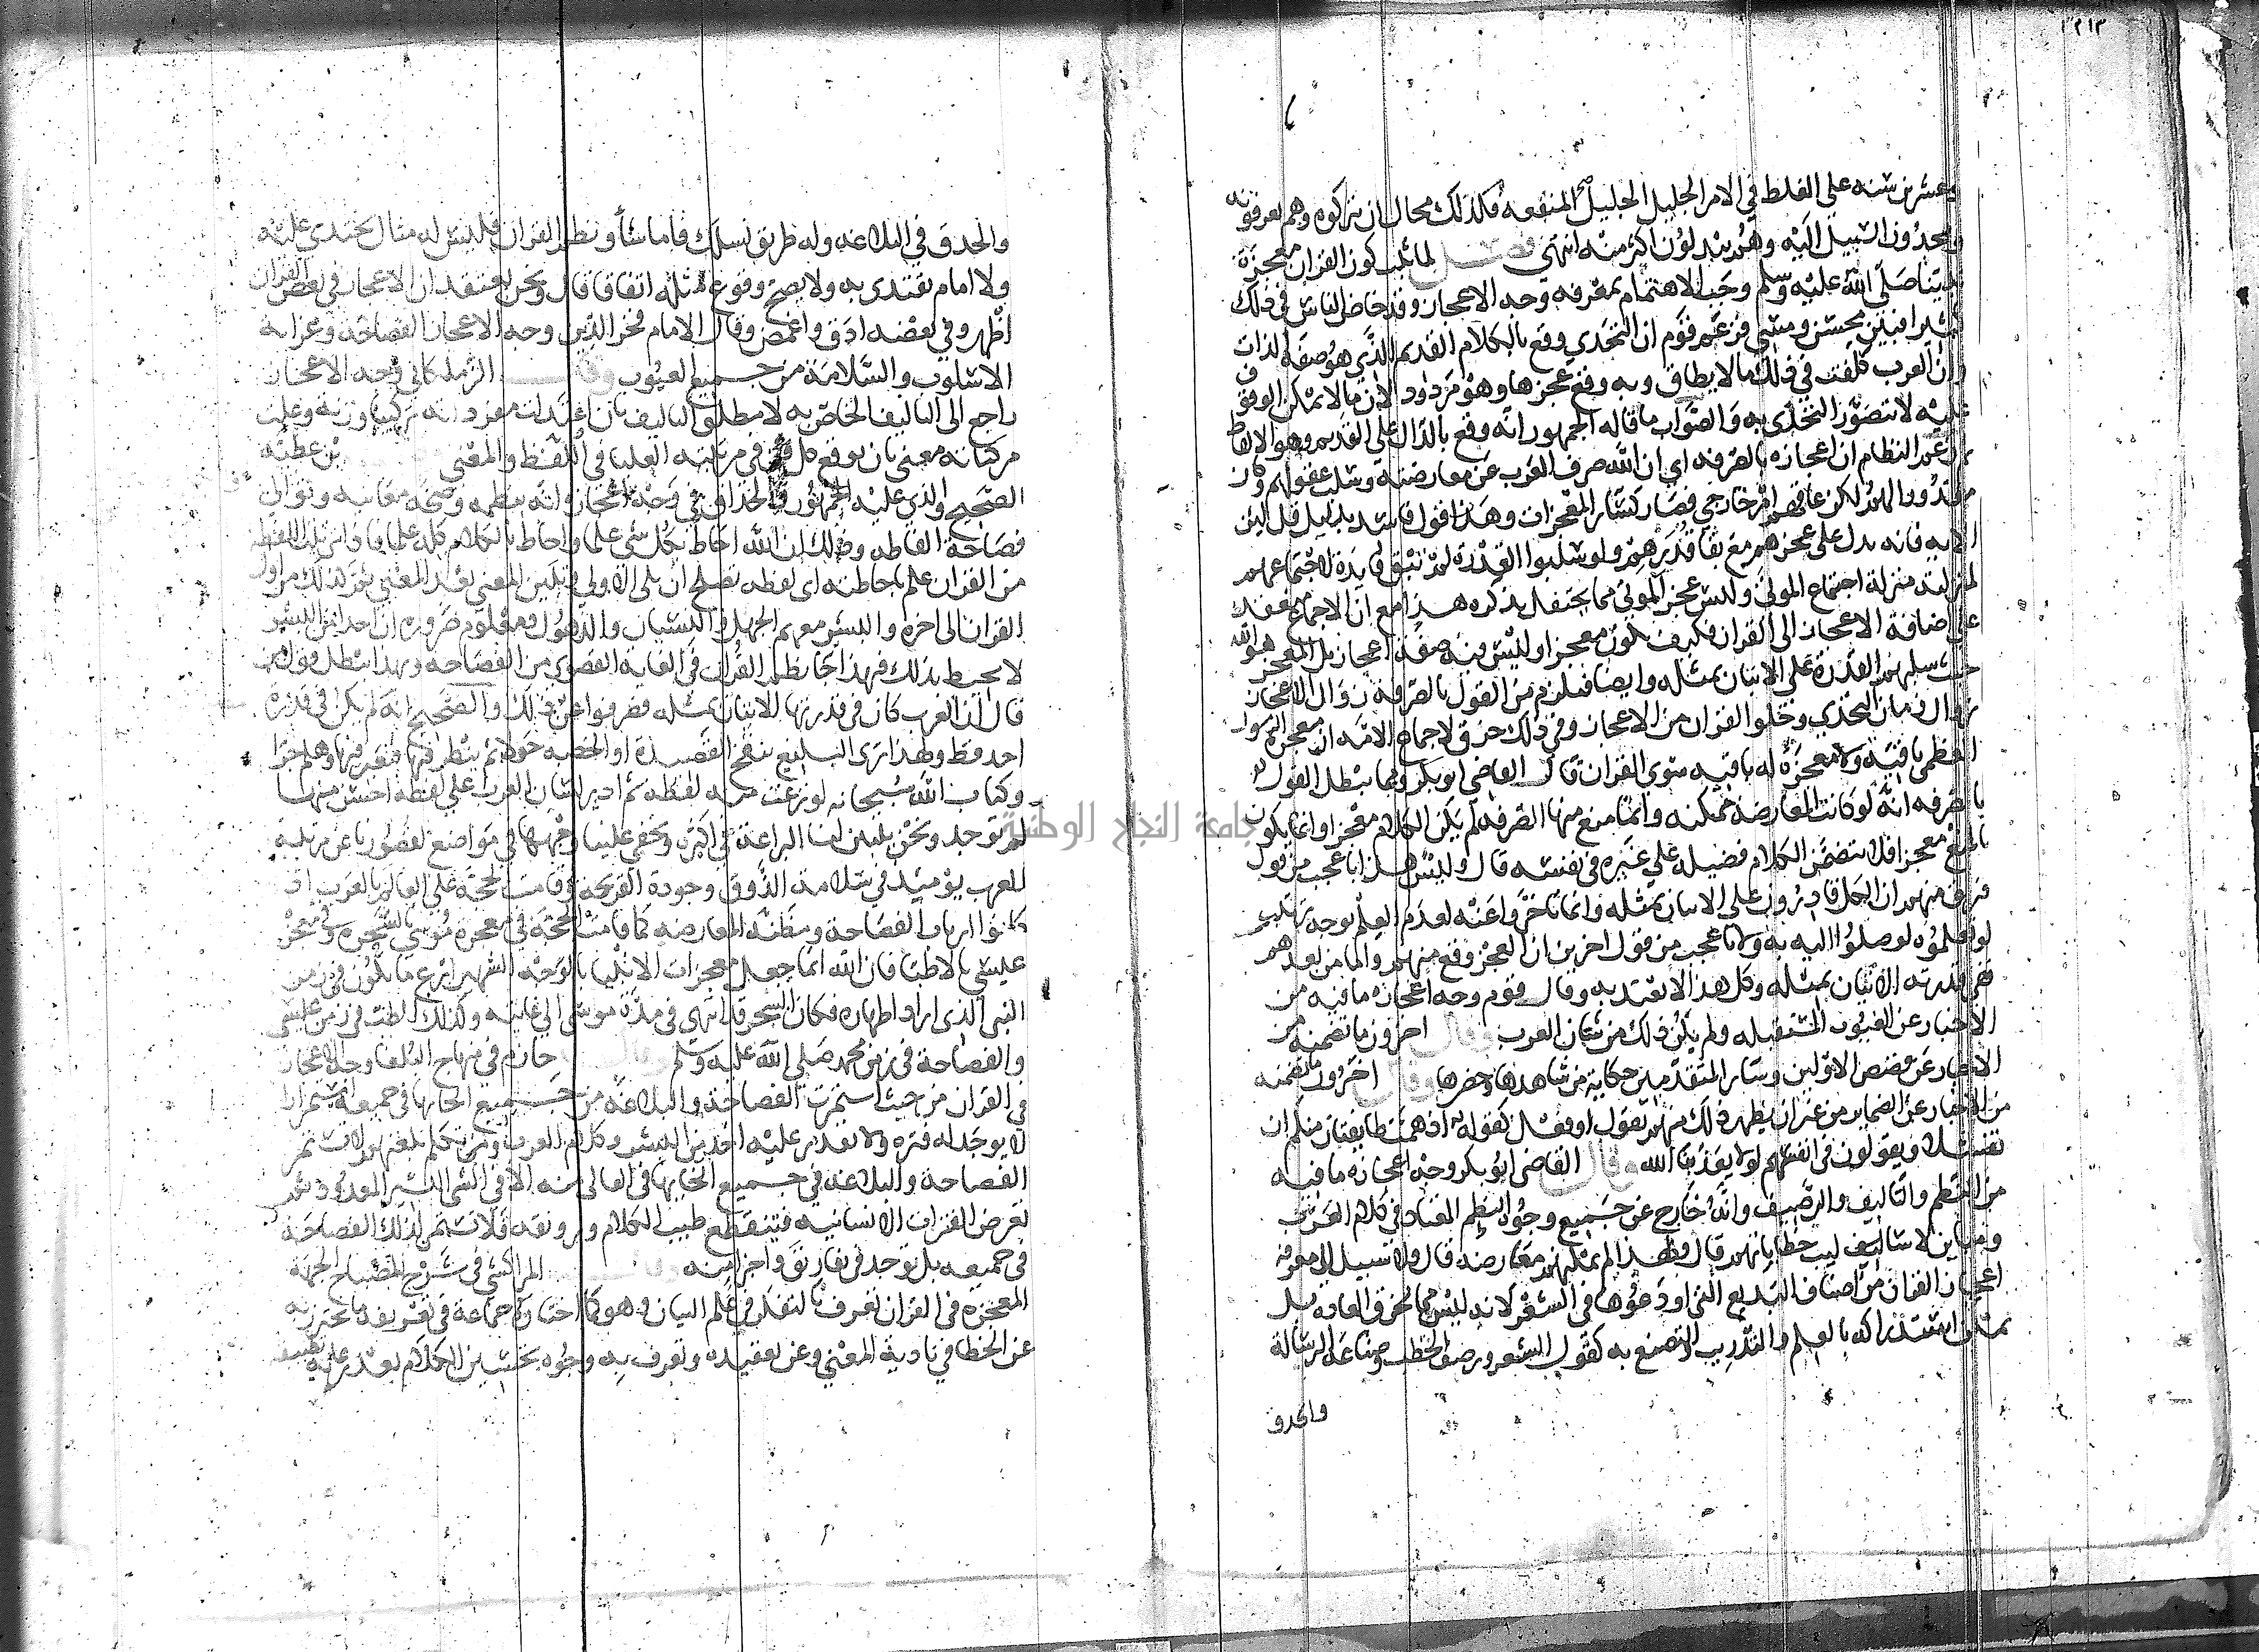 ٢١٣
وعشرين سنه على الغلط في الامر الجليل الجليل المنفعه فكذلك محال ان يتركوه وهم يعرفونه
ويجدون السبيل اليه وهم يبذلون اكثر منه انتهى فصل لما ثبت كون القران معجزة
نبينا صلى الله عليه وسلم وجب الاهتمام بمعرفه وجه الاعجاز وقد خاض الناس في ذلك
كثيرا فبين محسن ومسي فزعم قوم ان التحدي وقع بالكلام القديم الذي هو صفة الذات
وان العرب كلفت في ذلك ما لا يطاق وبه وقع عجزها وهو مردود لان ما لا يمكن الوقوف
عليه لا يتصور التحدي به والصواب ما قاله الجمهور انه وقع بالدال على القديم وهو الالفاظ
ثم زعم النظام ان اعجازه بالصرفه اي ان الله صرف العرب عن معارضته وسلب عقولهم وكان
مقدورا لهم لكن عاقهم امر خارجي فصار كسائر المعجزات وهذا قول فاسد بدليل قل لين
الايه فانه يدل على عجزهم مع بقا قدرتهم ولو سلبوا القدرة لم تبق فايدة لاجتماعهم
لمنزلته منزلة اجتماع الموتى وليس عجز الموتى مما يحتفل بذكره هذا مع ان الاجماع منعقد
على اضافة الاعجاز الى القران فكيف يكون معجزا وليس فيه صفة اعجاز بل المعجز هو الله
حيث سلبهم القدرة على الاتيان بمثله وايضا فيلزم من القول بالصرفة زوال الاعجاز
بزوال زمان التحدي وخلو القران من الاعجاز وفي ذلك خرق لاجماع الامة ان معجزه الرسول
العظمى باقيه ولا معجزة له باقيه سوى القران قال القاضي ابو بكر ومما يبطل القول
بالصرفه انه لو كانت المعارضة ممكنه وانما منع منها الصرفه لم يكن الكلام معجزا وانما يكون
بالمنع معجزا فلا يتضمن الكلام فضيلة على غيره في نفسه قال وليس هذا باعجب من قول
فريق منهم ان الكل قادرون على الاتيان بمثله وانما تاخروا عنه لعدم العلم بوجه ترتيب
لو تعلموه لوصلوا اليه به ولا باعجب من قول اخرين ان العجز وقع منهم واما من بعدهم
ففي قدرته الاتيان بمثله وكل هذا لا يعتد به وقال قوم وجه اعجازه ما فيه من
الاخبار عن الغيوب المستقبله ولم يكن ذلك من شان العرب وقال اخرون ما تضمنه من
الاخبار عن قصص الاولين وسائر المتقدمين حكاية من شاهدها وحضرها وقال اخرون ما تضمنه
من الاخبار عن الضماير من غير ان يظهر ذلك منهم بقول او فعل كقوله اذ همت طايفتان منكم ان
تفشلا ويقولون في انفسهم لولا يعذبنا الله وقال القاضي ابو بكر وجه اعجازه ما فيه
من النظم والتاليف والترصيف وانه خارج عن جميع وجوه النظم المعتاد في كلام العرب
ومباين لاساليب خطاباتهم قال ولهذا لم يمكنهم معارضته قال ولا سبيل الى معرفه
اعجاز القران من اصناف البديع التي اودعوها في الشعر لانه ليس مما يخرق العاده بل
يمكن استدراكه بالعلم والتدريب والتصنع به كقول الشعر ورصف الخطب وصناعة الرسالة
والحذق
والحذق في البلاغه وله طريق تسلك فاما شأو نظم القران فليس له مثال يحتذى عليه
ولا امام يقتدى به ولا يصح وقوع مثله اتفاقا قال ونحن نعتقد ان الاعجاز في بعض القران
اظهر وفي بعضه ادق واغمض وقال الامام فخر الدين وجه الاعجاز الفصاحة وغرابه
الاسلوب والسلامة من جميع العيوب وقال الزملكاني وجه الاعجاز
راجع الى التاليف الخاص به لا مطلق التاليف بان اعتدلت مفرداته تركيبا وزنة وعلت
مركباته معنى بان يوقع كل فن في مرتبته العليا في اللفظ والمعنى بن عطيه
الصحيح والذي عليه الجمهور والحذاق في وجه اعجازه انه بنظمه وصحه معانيه وتوالي
فصاحة الفاظه وذلك ان الله احاط بكل شي علما واحاط بالكلام كله علما فاذا ترتبت اللفظه
من القران علم باحاطته اي لفظه تصلح ان تلي الاولى وتبين المعنى بعد المعنى ثم كذلك من اول
القران الى اخره والبشر معهم الجهل والنسيان والذهول ومعلوم ضروره ان احدا من البشر
لا يحيط بذلك فبهذا جا نظم القران في الغاية القصوى من الفصاحه وبهذا يبطل قول من
قال ان العرب كان في قدرتها الاتيان بمثله فصرفوا عن ذلك والصحيح انه لم يكن في قدره
احد قط ولهذا ترى البليغ ينقح القصيدة او الخطبه حولا ثم ينظر فيها فيغير فيها وهلم جرا
وكتاب الله سبحانه لو نزعت منه لفظه ثم ادير لسان العرب على لفظة احسن منها
لم توجد ونحن يتبين لنا البراعة في اكثره ويخفى علينا وجهها في مواضع لقصورنا عن مرتبة
العرب يوميذ في سلامة الذوق وجودة القريحة وقامت الحجة على العالم بالعرب اذ
كانوا ارباب الفصاحة ومظنه المعارضه كما قامت الحجة في معجزه موسى بالسحره وفي معجزه
عيسى بالاطبا فان الله انما جعل معجزات الانبيا بالوجه الشهير ابرع ما يكون في زمن
النبي الذي اراد اظهاره فكان السحر قد انتهى في مدة موسى الى غايته وكذلك الطب في زمن عيسى
والفصاحة في زمن محمد صلى الله عليه وسلم وقال حازم في منهاج البلغا وجه الاعجاز
في القران من حيث استمرت الفصاحة والبلاغة من جميع انحائها في جميعه استمرارا
لا يوجد له فتره ولا يقدر عليه احد من البشر وكلام العرب ومن تكلم بلغتهم لا تستمر
الفصاحة والبلاغه في جميع انحايها في العالي منه الا في الشي اليسير المعدود ثم
تعرض الفترات الانسانيه فينقطع طيب الكلام ورونقه فلا تستمر لذلك الفصاحة
في جميعه بل توجد في تفاريق واجزا منه وقال المراكشي في شرح المصباح الجهة
المعجزه في القران تعرف بالتفكر في علم البيان وهو كما اختاره جماعة في تعريفه ما يحترز به
عن الخطا في تادية المعنى وعن تعقيده وتعرف به وجوه تحسين الكلام بعد رعاية تطبيقه
جامعة النجاح الوطنية